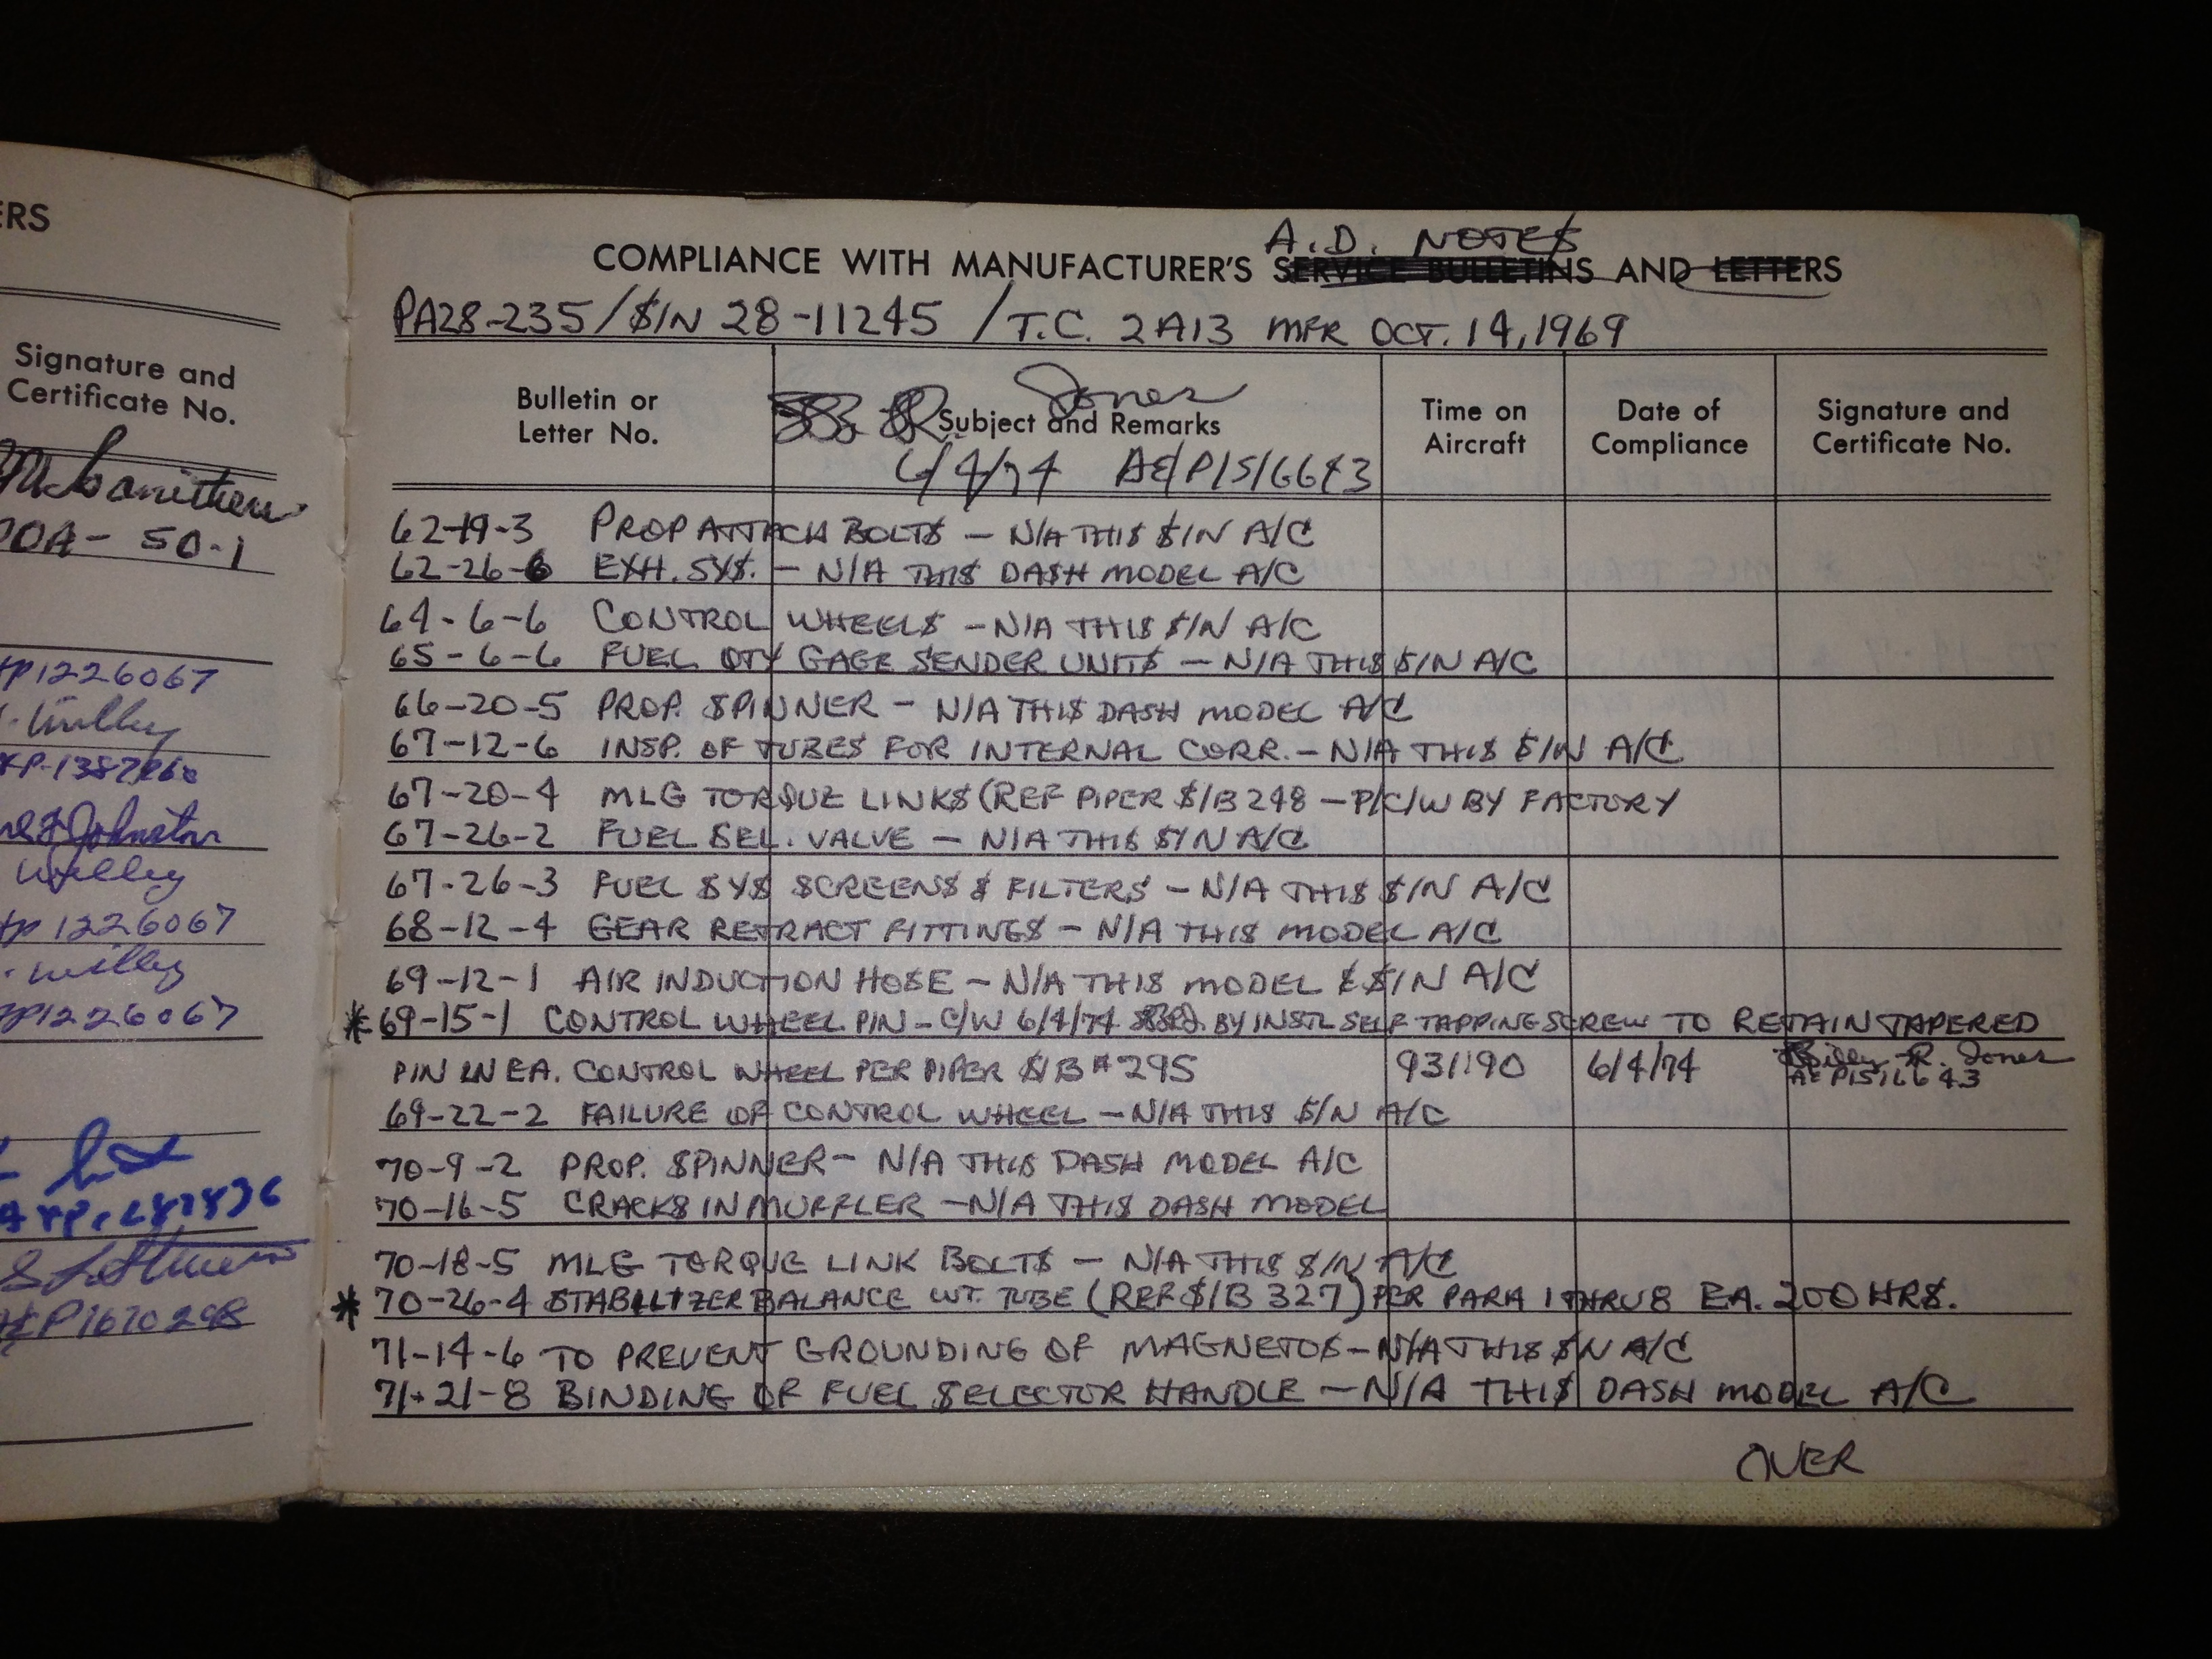 ERS
Signature and
Certificate No.
50-1
1226067
1226067
1226067
A.D. NOTES
COMPLIANCE WITH MANUFACTURER'S SERVICE BULLETINS AND LETTERS
PA28-235/S/N 28-11245 /T.C. 2A13 MFR OCT. 14, 1969
Bulletin or
Letter No.
Jones
Subject and Remarks
6/4/74
Time on
Aircraft
Date of
Compliance
Signature and
Certificate No.
62-19-3 PROP ATTACH BOLTS - N/A THIS S/N A/C
62-26-6 EXH. SYS. - N/A THIS DASH MODEL A/C
64-6-6 CONTROL WHEELS - N/A THIS S/N A/C
65-6-6 FUEL QTY GAGE SENDER UNITS - N/A THIS S/N A/C
66-20-5 PROP. SPINNER - N/A THIS DASH MODEL A/C
67-12-6 INSP. OF TUBES FOR INTERNAL CORR. - N/A THIS S/N A/C
67-20-4 MLG TORQUE LINKS (REF PIPER S/B 248 - P/C/W BY FACTORY
67-26-2 FUEL SEL. VALVE - N/A THIS S/N A/C
67-26-3 FUEL SYS SCREENS & FILTERS - N/A THIS S/N A/C
68-12-4 GEAR RETRACT FITTINGS - N/A THIS MODEL A/C
69-12-1 AIR INDUCTION HOSE - N/A THIS MODEL & S/N A/C
* 69-15-1 CONTROL WHEEL PIN - C/W 6/4/74 BY INSTL SELF TAPPING SCREW TO RETAIN TAPERED
PIN IN EA. CONTROL WHEEL PER PIPER S/B #295 931:90 6/4/74 Billy R. Jones
69-22-2 FAILURE OF CONTROL WHEEL - N/A THIS S/N A/C
70-9-2 PROP. SPINNER - N/A THIS DASH MODEL A/C
70-16-5 CRACKS IN MUFFLER - N/A THIS DASH MODEL
70-18-5 MLG TORQUE LINK BOLTS - N/A THIS S/N A/C
* 70-26-4 STABILIZER BALANCE WT. TUBE (REF S/B 327) PER PARA 1 THRU 8 EA. 200 HRS.
71-14-6 TO PREVENT GROUNDING OF MAGNETOS - N/A THIS S/N A/C
71-21-8 BINDING OF FUEL SELECTOR HANDLE - N/A THIS DASH MODEL A/C
OVER